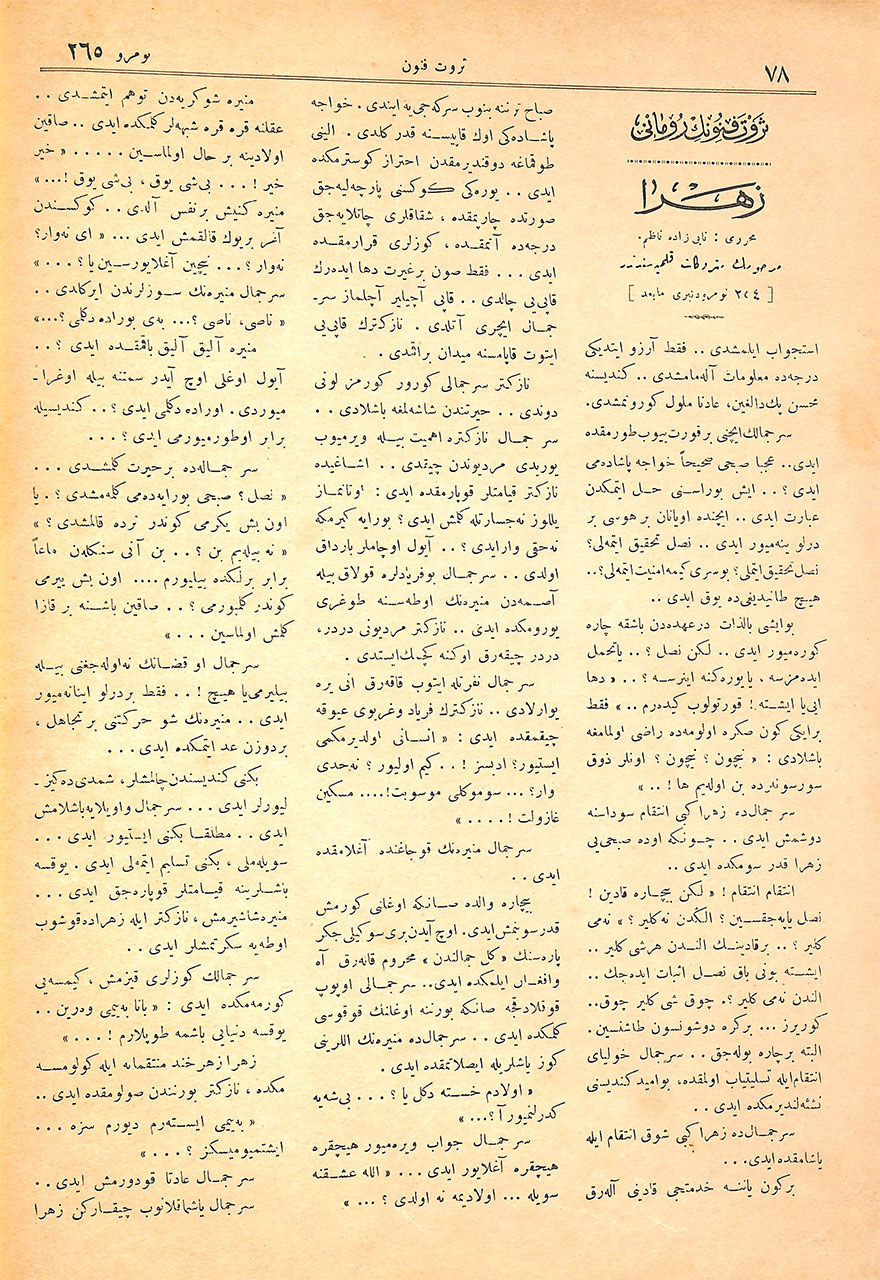 ٧٨
ثروت فنون
نومرو ٢٦٥
ثروت فنونك رومانى
زهرا
محررى : نابى زاده ناظم.
مرحومك متروكات قلميه سندندر
[ ٢٥٤ نومرودنبرى مابعد ]
استجواب ايلمشدى .. فقط آرزو ايتديكى
درجه ده معلومات آله مامشدى .. كنديسنه
محسن پك دالغين، عادتا ملول كورونمشدى.
سرجمالك ايچنى بر قورت ييوب طورمقده
ايدى.. عجبا صبحى صحيحاً خواجه پاشاده مى
ايدى ؟ . . ايش بوراسنى حل ايتمكدن
عبارت ايدى .. ايچنده اويانان بر هوسى بر
درلو ينه ميور ايدى .. نصل تحقيق ايتمه لى؟
نصل تحقيق ايتملى؟ بو سرى كيمه امنيت ايتمه لى؟..
هيچ طانيديغى ده يوق ايدى ..
بو ايشى بالذات در عهده دن باشقه چاره
كوره ميور ايدى .. لكن نصل ؟ .. يا تحمل
ايده مزسه ، يا يوره كنه اينرسه ؟ .. « دها
ايى يا ايشته ! قورتولوب كيده رم .. » فقط
بر ايكى كون صكره اولومه ده راضى اولمامغه
باشلادى : « نيچون ؟ نيچون ؟ اونلر ذوق
سورسونده بن اوله يم ها ! .. »
سرجمال ده زهرا كبى انتقام سوداسنه
دوشمش ايدى .. چونكه اوده صبحى يى
زهرا قدر سومكده ايدى ..
انتقام انتقام ! « لكن بيچاره قادين !
نصل ياپه جقسين ؟ الكدن نه كلير ؟ » نه مى
كلير ؟ .. بر قادينك الندن هر شى كلير ..
ايشته بونى باق نصل اثبات ايده جك ..
الندن نه مى كلير ؟. چوق شى كلير چوق..
كوريرز ... بر كره دوشونسون طاشنسين.
البته بر چاره بوله جق .. سرجمال خولياى
انتقام ايله تسليتياب اولمقده، بو اميد كنديسنى
نشئه لنديرمكده ايدى ..
سرجمال ده زهرا كبى شوق انتقام ايله
ياشامقده ايدى...
بر كون ياننه خدمتجى قادينى آله رق
صباح ترننه بنوب سركه جى يه ايندى . خواجه
پاشاده كى اوك قاپيسنه قدر كلدى . النى
طوقماغه دوقنديرمقدن احتراز كوسترمكده
ايدى .. يوره كى كوكسنى پارچه ليه جق
صورتده چارپمقده ، شقاقلرى چاتلايه جق
درجه ده آتمقده ، كوزلرى قرارمقده
ايدى ... فقط صون بر غيرت دها ايده رك
قاپى يى چالدى .. قاپى آچيلير آچلماز سر-
جمال ايچرى آتلدى . نازكترك قاپى يى
ايتوب قاپامسنه ميدان براقمدى .
نازكتر سرجمالى كورور كورمز لونى
دوندى .. حيرتندن شاشه لمغه باشلادى ..
سرجمال نازكتره اهميت بيله ويرميوب
يوريدى مرديوندن چيقدى .. اشاغيده
نازكتر قيامتلر قوپارمقده ايدى : اوتانماز
يللوز نه جسارتله كلمش ايدى؟ بورايه كيرمكه
نه حقى وار ايدى ؟ .. آيول اوچاملر بارداق
اولدى .. سرجمال بو فريادلره قولاق بيله
آصمه دن منيره نك اوطه سنه طوغرى
يورومكده ايدى .. نازكتر مرديونى دردر،
دردر چيقه رق اوكنه كچمك ايستدى .
سرجمال نفرتله ايتوب قاقه رق انى يره
يوارلادى .. نازكترك فرياد و غريوى عيوقه
چيقمقده ايدى : « انسانى اولديرمكمى
ايستيور؟ ادبسز ! .. كيم اوليور ؟ نه حدى
وار؟ ... سوموكلى موسويت!.... مسكين
غازولت ! . . . . »
سرجمال منيره نك قوجاغنده آغلامقده
ايدى ..
بيچاره والده صانكه اوغلنى كورمش
قدر سونمش ايدى. اوچ آيدن برى سوكيلى جكر
پاره سنك « كل جمالندن » محروم قاله رق آه
وافغان ايلمكده ايدى.. سرجمالى اوپوپ
قوقلادقجه صانكه بورننه اوغلنك قوقوسى
كلمكده ايدى .. سرجمال ده منيره نك اللرينى
كوز ياشلريله ايصلاتمقده ايدى .
« اولادم خسته دكل يا ؟ ... بى شه يه
كدرلنميور آ؟... »
سرجمال جواب ويره ميور هيچقره
هيچقره آغلايور ايدى ... « الله عشقنه
سويله ... اولاديمه نه اولدى ؟ ... »
منيره شو كريه دن توهم ايتمشدى ..
عقلنه قره قره شبهه لر كلمكده ايدى .. صاقين
اولادينه بر حال اولماسين ..... « خير
خير ! ... بى شى يوق ، بى شى يوق !...»
منيره كنيش بر نفس آلدى.. كوكسندن
آغر بر يوك قالقمش ايدى ... « اى نه وار؟
نه وار ؟ ... نيچين آغلايورسين يا ؟ ... »
سرجمال منيره نك سوزلرندن ايركلدى ..
« ناصى، ناصى ؟... به ى بوراده دكلمى ؟...»
منيره آليق آليق باقمقده ايدى ؟ ..
آيول اوغلى اوچ آيدر سمتنه بيله اوغرا-
ميوردى. اوراده دكلمى ايدى ؟ .. كنديسيله
برابر اوطورميورمى ايدى ؟ ...
سرجماله ده بر حيرت كلمشدى ...
« نصل ؟ صبحى بورايه ده مى كلمه مشدى ؟ . يا
اون بش يكرمى كوندر نرده قالمشدى ؟ »
« نه بيله يم بن ؟ .. بن آنى سنكله ن ماعاً
برابر بر لكده بيليورم .... اون بش ييرمى
كوندر كلميورمى ؟ .. صاقين باشنه بر قازا
كلمش اولماسين ... »
سرجمال او قضانك نه اوله جغنى بيله
بيليرمى يا هيچ ! .. فقط بر درلو اينانه ميور
ايدى .. منيره نك شو حركتنى بر تجاهل ،
بر دوزن عد ايتمكده ايدى ...
بكنى كنديسندن چالمشلر، شمدى ده كيز-
ليورلر ايدى ... سرجمال واويلايه باشلامش
ايدى .. مطلقا بكنى ايستيور ايدى ...
سويله ملى ، بكنى تسليم ايتمه لى ايدى . يوقسه
باشلرينه قيامتلر قوپاره جق ايدى ...
منيره شاشيرمش ، نازكتر ايله زهرا ده قوشوب
اوطه يه سكرتمشلر ايدى ..
سرجمالك كوزلرى قيزمش ، كيمسه يى
كورمه مكده ايدى : « بانا به يمى وه رين ..
يوقسه دنيايى باشمه طوپلارم ! ... »
زهرا زهرخند منتقمانه ايله كولومسه
مكده ، نازكتر بورنندن صولومقده ايدى ..
« به يمى ايسته رم ديورم سزه ...
ايشتميوميسكز ؟ ... »
سرجمال عادتا قودورمش ايدى ..
سرجمال ياشماقلانوب چيقاركن زهرا